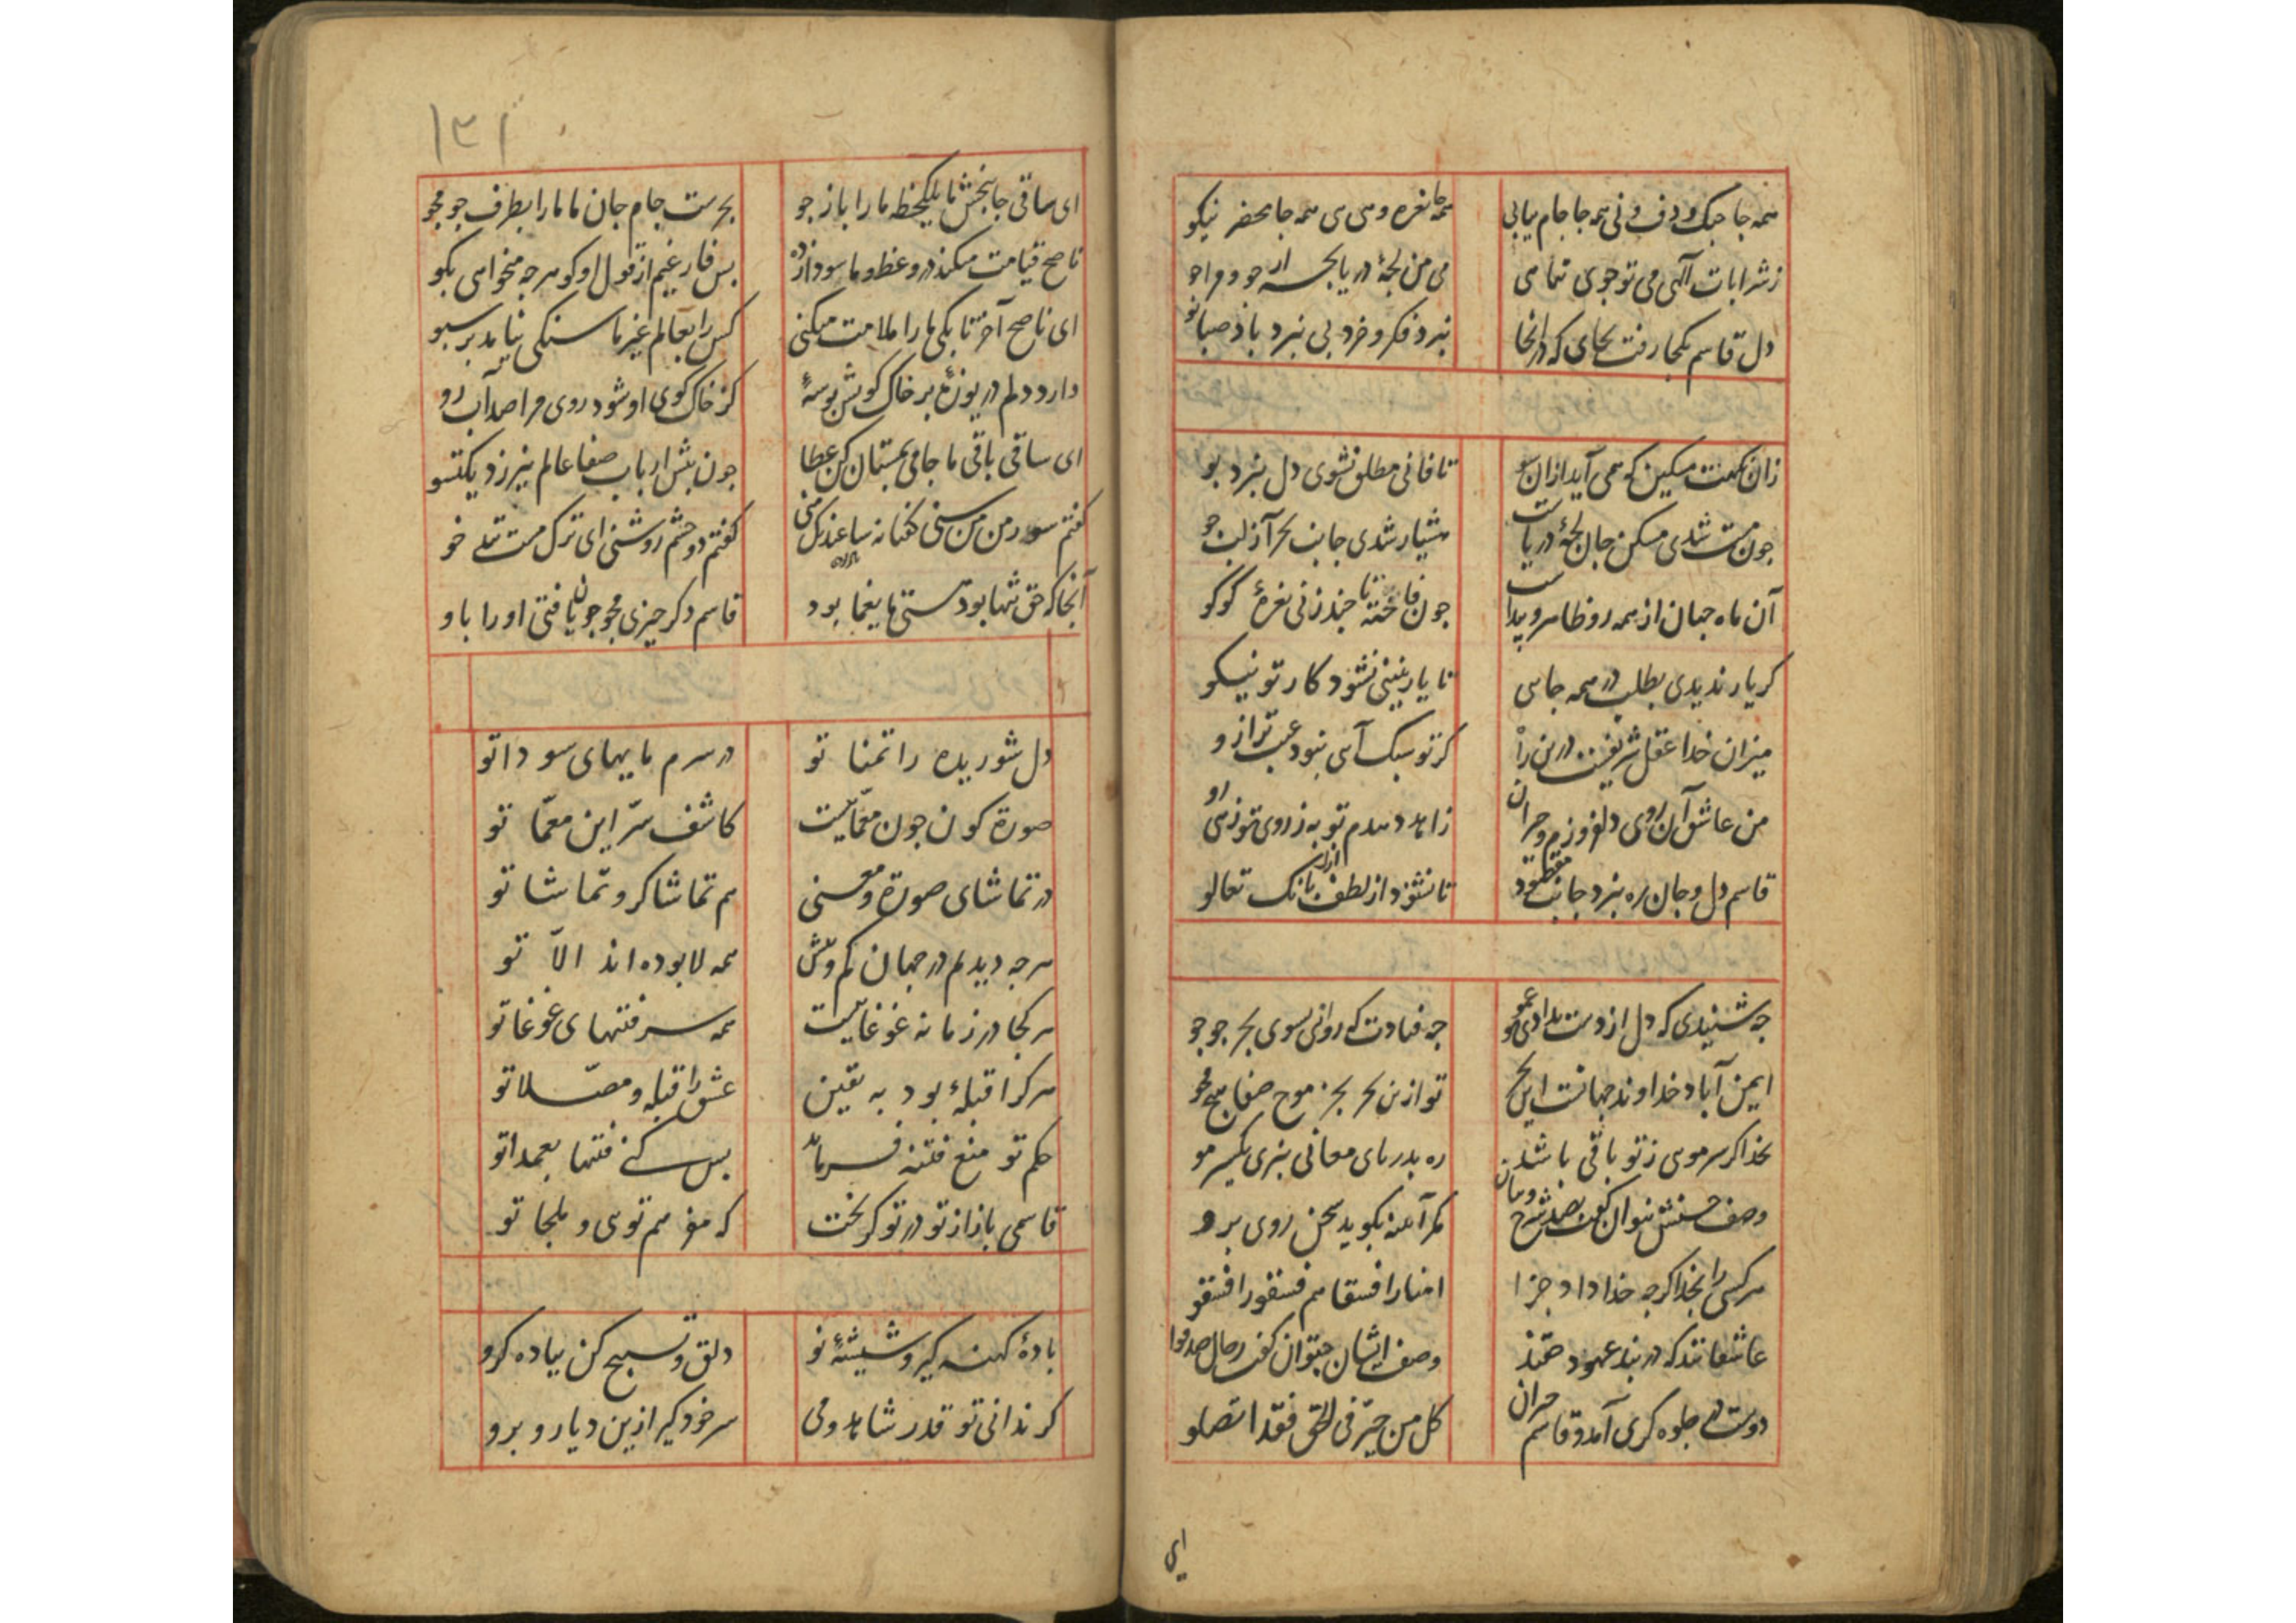 همه جا جنک و دف و نی همه جا جام بیابی همه جا نعره و هی هی همه جا محضر نیکو
زشرابات الهی می توجوی تمامی می من لجهٔ دریا بحسه از جو و مراجو
دل قاسم بکجا رفت بجای که در انجا نبرد فکر و خرد بی نبرد باد صبا تو
زان نکهت مسکین که همی آید ازان سو تا فانی مطلق نشوی دل نبرد بو
جون مست شدی مسکن جان لجهٔ دریاست هشیار شدی جانب بحر آ ز لب جو
آن ماه جهان از همه رو ظاهر و پیداست جون فاخته تا جند زنی نعرهٔ کوکو
کر یار ندیدی بطلب در همه جاهی تا یار نبینی نشود کار تو نیکو
میزان خدا عقل شریفست درین راه کر تو سبک آیی نبود عیب ترازو
من عاشق آن روی دلفروزم و حیران زاهد دهدم توبه ز روی تو زهی رو
قاسم دل و جان ره نبرد جانب مقصود تا نشنود از لطف ازل بانک تعالو
جه شنیدی که دل از دست بدادی عمو جه فتادت که روانی سوی بحر جو جو
ایمن آباد خداوند جهانست این بحر تو ازین بحر بجز موج صفا هیج مجو
بخدا کر سر موی ز تو باقی باشد ره بدریای معانی نبری یکسر مو
وصف حسنش نتوان کفت بصد شرح و بیان مکر آینه بکوید سخن روی برو
هر کسی را بخدا کرجه خدا داد جزا
عاشقانند که در بند عهود صمند وصف ایشان جتوان کفت رجال صدقوا
دوست در جلوه کری آمد و قاسم حیران کل من حیر فی الحق فقد اتصلو
ای
۱۳۱
ای ساقی جانبخش ما یکلحظه ما را باز جو بحرست جام جان ما ما را بطرف جو مجو
ناصح قیامت میکند در وعظ و ما سودازده بس فارغیم از قول او کو هرجه میخواهی بکو
ای ناصح آخر تا بکی ما را ملامت میکنی کس را بعالم غیر ما سنکی نیامد بر سبو
دارد دلم دریوزهٔ بر خاک کویش بوسهٔ کز خاک کوی او شود روی مرا صد آب رو
ای ساقی باقی ما جامی بمستان کن عطا جون بیش ارباب صفا عالم نیرزد یکتسو
کفتم دو جشم روشنی ای ترک مست تند خو
آنجا که حق تنها بود هستی ما یغما بود قاسم دکر جیزی مجو جون یافتی او را باو
دل شوریده را تمنا تو در سرم مایهای سودا تو
صورة کون جون معماییست کاشف سر این معما تو
در تماشای صورة و معنی هم تماشاکر و تماشا تو
هرجه دیدم در جهان کم و بیش همه لا بوده اند الا تو
هرکجا در زمانه غوغاییست همه سر فتنهای غوغا تو
هر کرا قبلهٔ بود به یقین عشق را قبله و مصلا تو
حکم تو منع فتنه فرماید بس کنی فتنها بعمدا تو
قاسمی باز از تو در تو کریخت که مفر هم توی و ملجا تو
بادهٔ کهنه کیر و شیشهٔ نو دلق و تسبیح کن بباده کرو
کر ندانی تو قدر شاهد و می سر خود کیر ازین دیار و برو